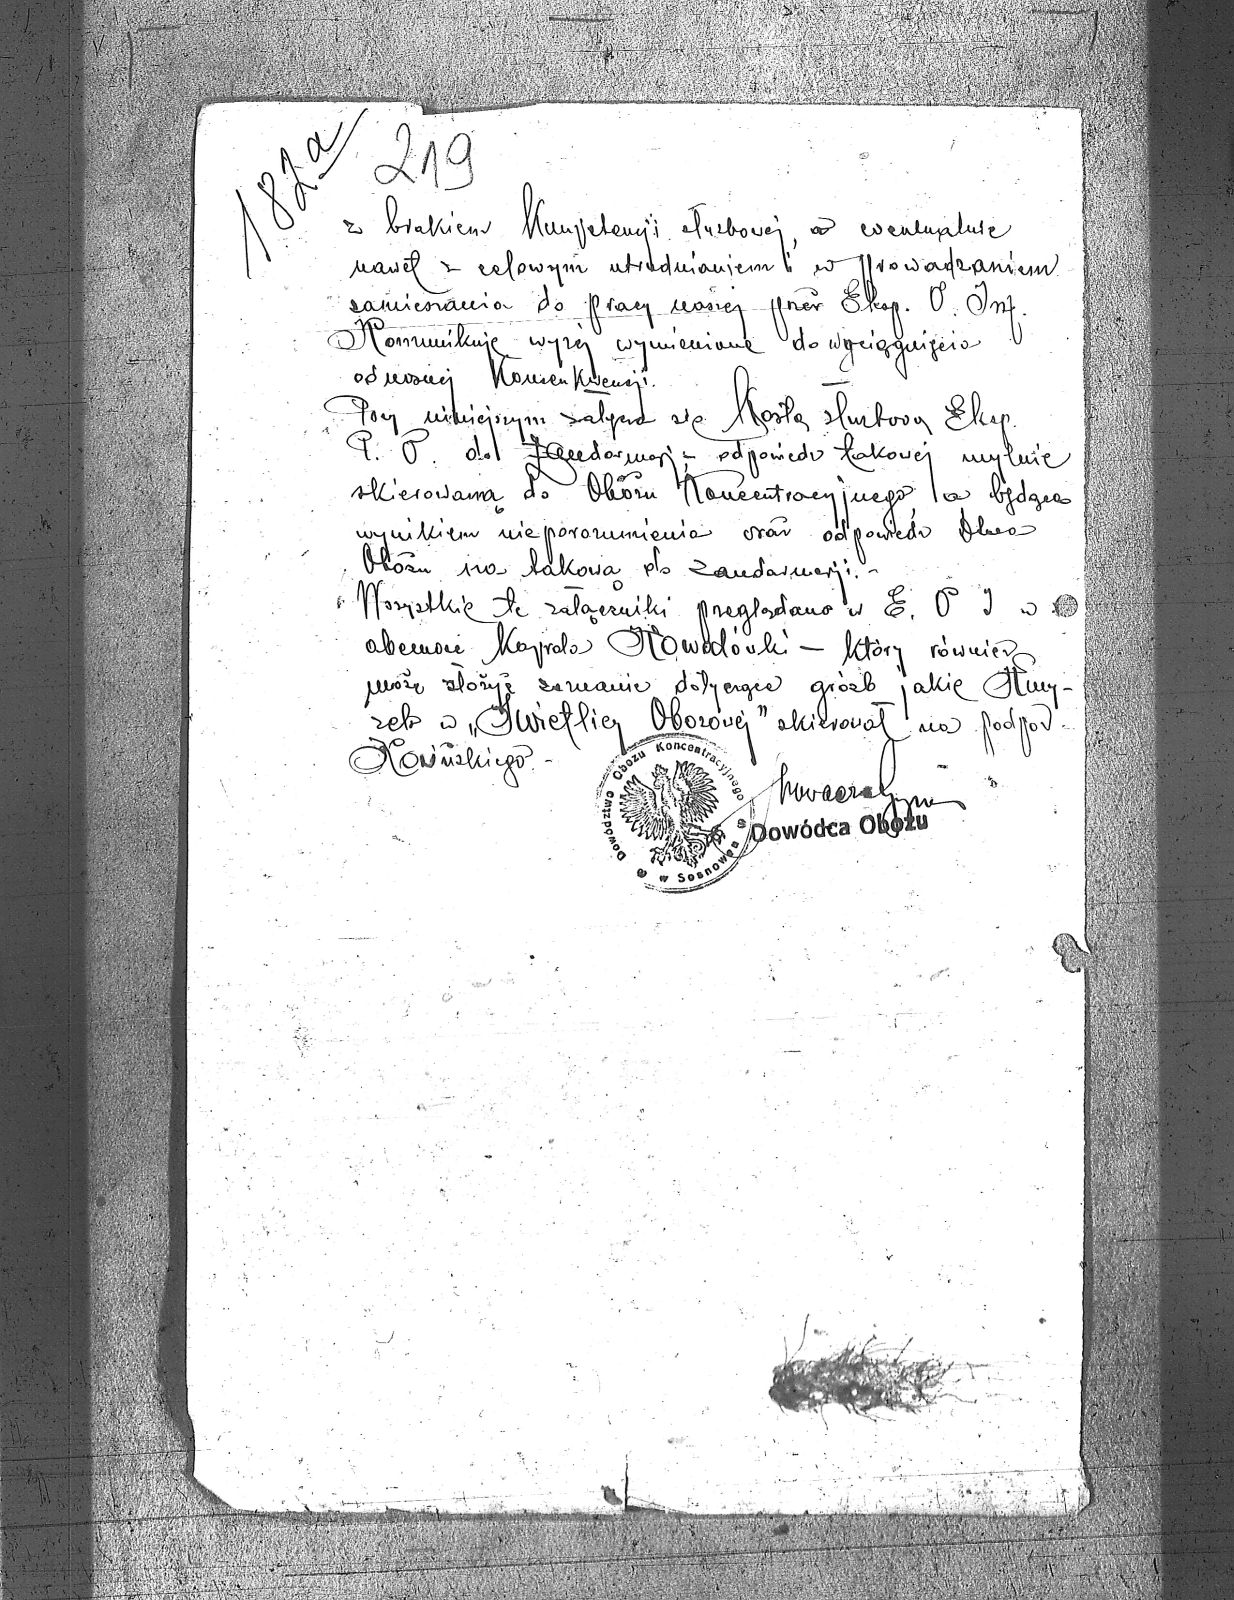 182a
219
z brakiem Kompetencji służbowej, a ewentualnie
nawet z celowym utrudnianiem i w prowadzaniem
zamieszania do pracy naszej przez Eksp. O. Inf.
Komunikuję wyżej wymienione do wyciągnięcia
odnośnej Konsenkwencji.
Przy niniejszym załącza się Kartą służbową Eksp.
P. O. do Żandarmerji, odpowiedz takowej mylnie
skierowaną do Obozu Koncentracyjnego a będąca
wynikiem nieporozumienia oraz odpowiedz
Obozu na takową do Żandarmerji.-
Wszystkie te załączniki przeglądano w E. O I w
obecności Kaprala - który również
może złożyć zeznanie dotyczące gróźb jakie Kmy-
zek w „Świetlicy Obozowej" skierował na podpor-
Kosińskiego.-
Dowództwo Obozu Koncentracyjnego
w Sosnowcu
Dowódca Obozu